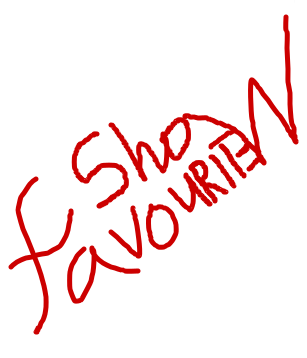 ShoW
favoURITE